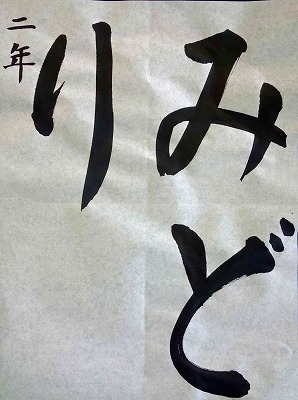 みど
り
二年